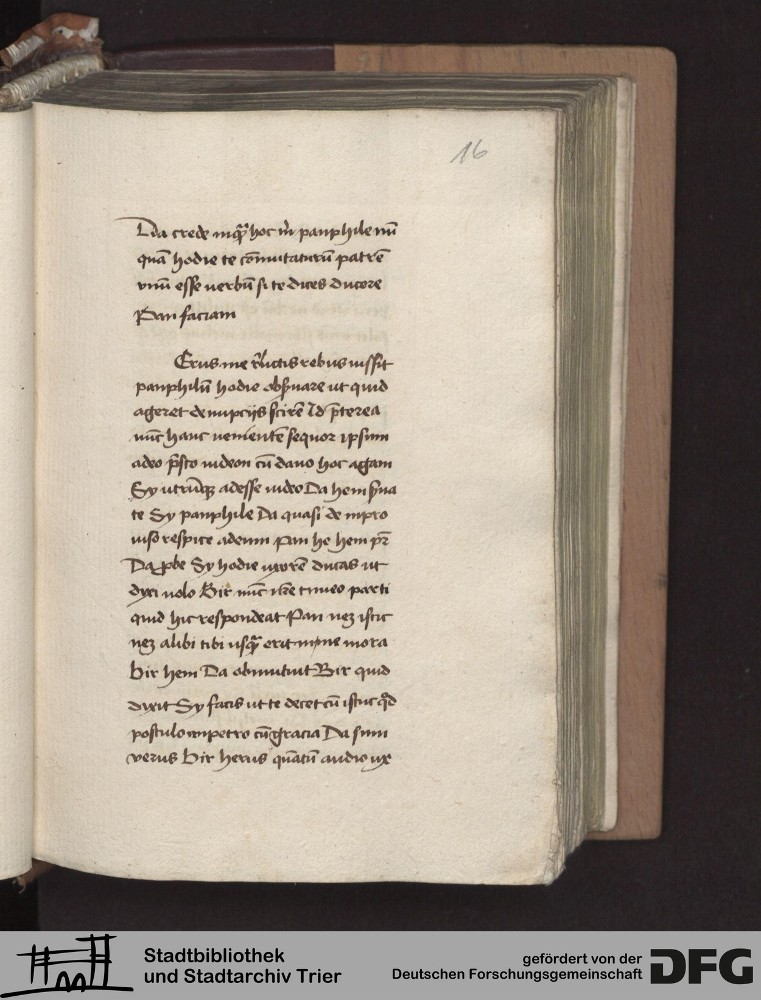 16
Da crede inquã hoc m̃ pamphile nũ
quã hodie te cõmutaturũ patrẽ
vnũ esse uerbũ si te dices ducere
Pan faciam
Erus me r̃lictis rebus iussit
pamphilũ hodie obẜuare ut quid
ageret de nupcijs scirẽ Id p̃terea
nũc hanc uenientẽ sequor ipsum
adeo p̃sto uideon cũ dauo hoc agam
Sy utrũqꝫ adesse uideo Da hem ẜua
te Sy pamphile Da quasi de inpro
uiso respice ad eum Pan he hem pr̃
Da ꝓbe Sy hodie uxorẽ ducas ut
dixi uolo Bir nũc ñre timeo parti
quid hic respondeat Pan neqꝫ istic
neqꝫ alibi tibi usquã erit in me mora
bir hem Da obmutuit Bir quid
dixit Sy facis ut te decet cũ istuc qd̃
postulo inpetro cũ gracia Da sum
verus bir herus quãtũ audio ux
Stadtbibliothek
und Stadtarchiv Trier
gefördert von der
Deutschen Forschungsgemeinschaft
DFG